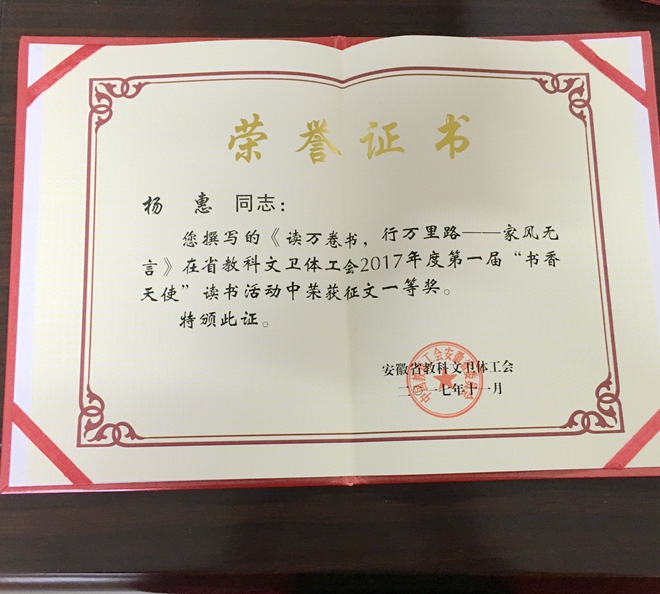 荣誉证书
杨 惠 同志：
您撰写的《读万卷书，行万里路——家风无
言》在省教科文卫体工会2017年度第一届“书香
天使”读书活动中荣获征文一等奖。
特颁此证。
安徽省教科文卫体工会
二〇一七年十一月